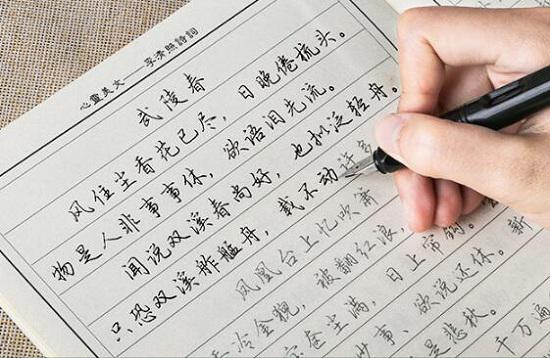 心靈美文——李清照詩詞
武陵春
风住尘香花已尽，日晚倦梳头。
物是人非事事休，欲语泪先流。
闻说双溪春尚好，也拟泛轻舟。
只恐双溪舴艋舟，载不动许多
凤凰台上忆吹
冷金猊，被翻红浪，
宝奁尘满，日上帘钩。
事、欲说还休。新
是悲秋。
千万遍